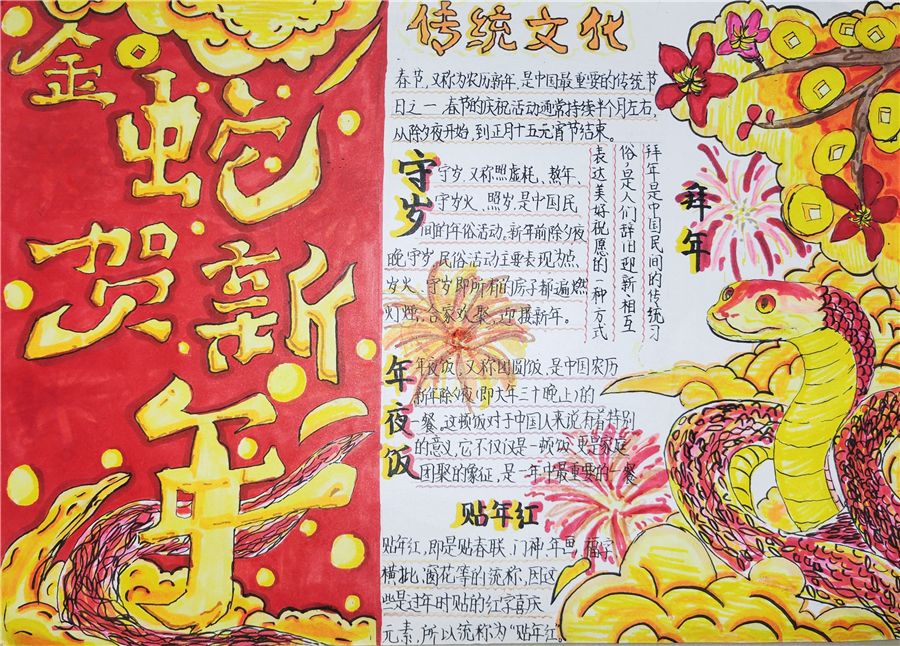 金蛇
贺新
年
传统文化
春节,又称为农历新年,是中国最重要的传统节
日之一 春节的庆祝活动通常持续半个月左右,
从除夕夜开始,到正月十五元宵节结束。
守岁
守岁,又称照虚耗、熬年、
守岁火、照岁,是中国民
间的年俗活动,新年前除夕夜
晚守岁,民俗活动主要表现为点
岁火、守岁即所有的房子都遍燃
灯烛,合家欢聚,迎接新年。
拜年
拜年是中国民间的传统习
俗,是人们辞旧迎新、相互
表达美好祝愿的一种方式
年夜饭
年夜饭,又称团圆饭,是中国农历
新年除夕(即大年三十晚上)的
一餐,这顿饭对于中国人来说有着特别
的意义,它不仅仅是一顿饭,更是家庭
团聚的象征,是一年中最重要的一餐
贴年红
贴年红,即是贴春联、门神、年画、福字、
横批、窗花等的统称,因这
些是过年时贴的红字喜庆
元素,所以统称为“贴年红。